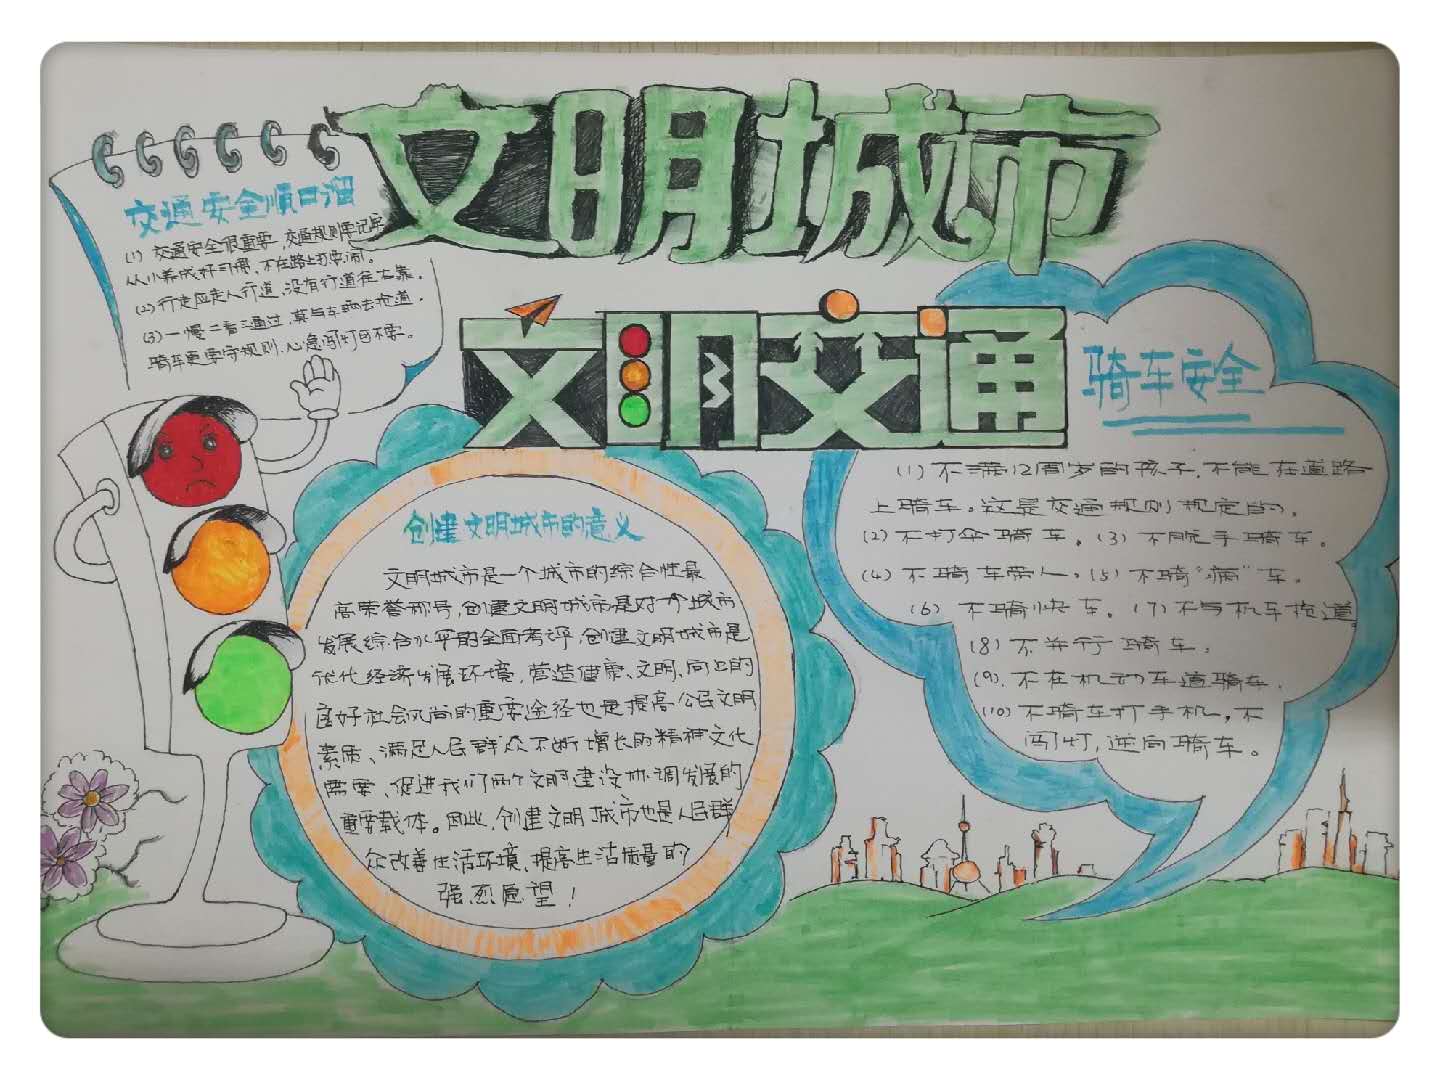 文明城市
文明交通
交通安全顺口溜
(1) 交通安全很重要,交通规则牢记牢
从小养成好习惯,不在路上打闹。
(2)行走应走人行道,没有行道往右靠。
(3)一慢二看三通过,莫与车辆去抢道。
骑车更要守规则,心急闯灯
创建文明城市的意义
文明城市是一个城市的综合性最
高荣誉称号,创建文明城市是对一个城市
发展综合水平的全面考评,创建文明城市是
优化经济发展环境,营造健康、文明、向上的
良好社会风尚的重要途径也是提高公民文明
素质、满足人民群众不断增长的精神文化
需要、促进我们两个文明建设协调发展的
重要载体。因此,创建文明城市也是人民群
众改善生活环境、提高生活质量的
强烈愿望!
骑车安全
(1) 不满12周岁的孩子,不能在道路
上骑车。这是交通规则规定的。
(2) 不打伞骑车。(3) 不脱手骑车。
(4) 不骑车带人。(5) 不骑“病”车。
(6) 不骑快车。(7) 不与机车抢道
(8) 不并行骑车。
(9). 不在机动车道骑车。
(10) 不骑车打手机,不
闯灯,逆向骑车。